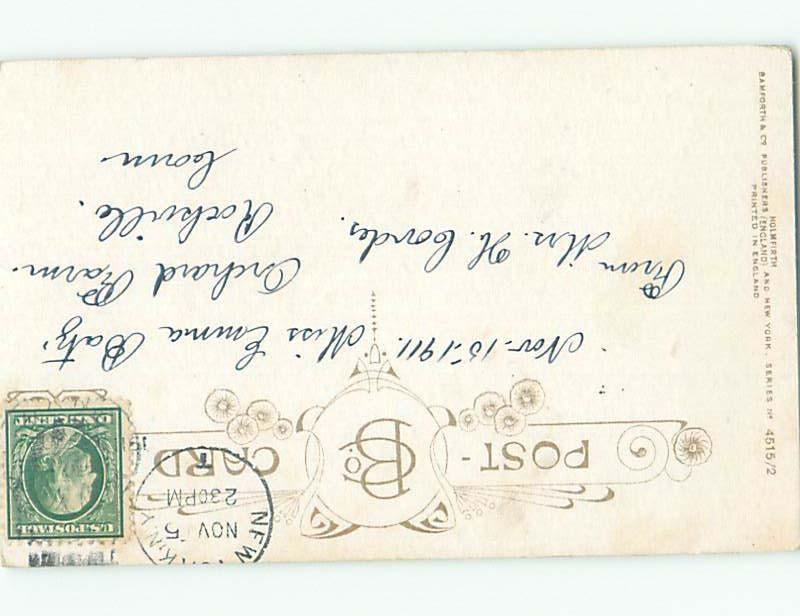 POST-CARD
B & Co
NEW YORK, N.Y.
NOV 15
230PM
T
U.S. POSTAGE
ONE CENT
Nov. 15-1911.
From Mrs. H. Cordes.
Miss Emma Batz
Orchard Farm.
Rockville.
Conn
BAMFORTH & Co. PUBLISHERS (ENGLAND) AND NEW YORK. SERIES No 4515/2
HOLMFIRTH
PRINTED IN ENGLAND